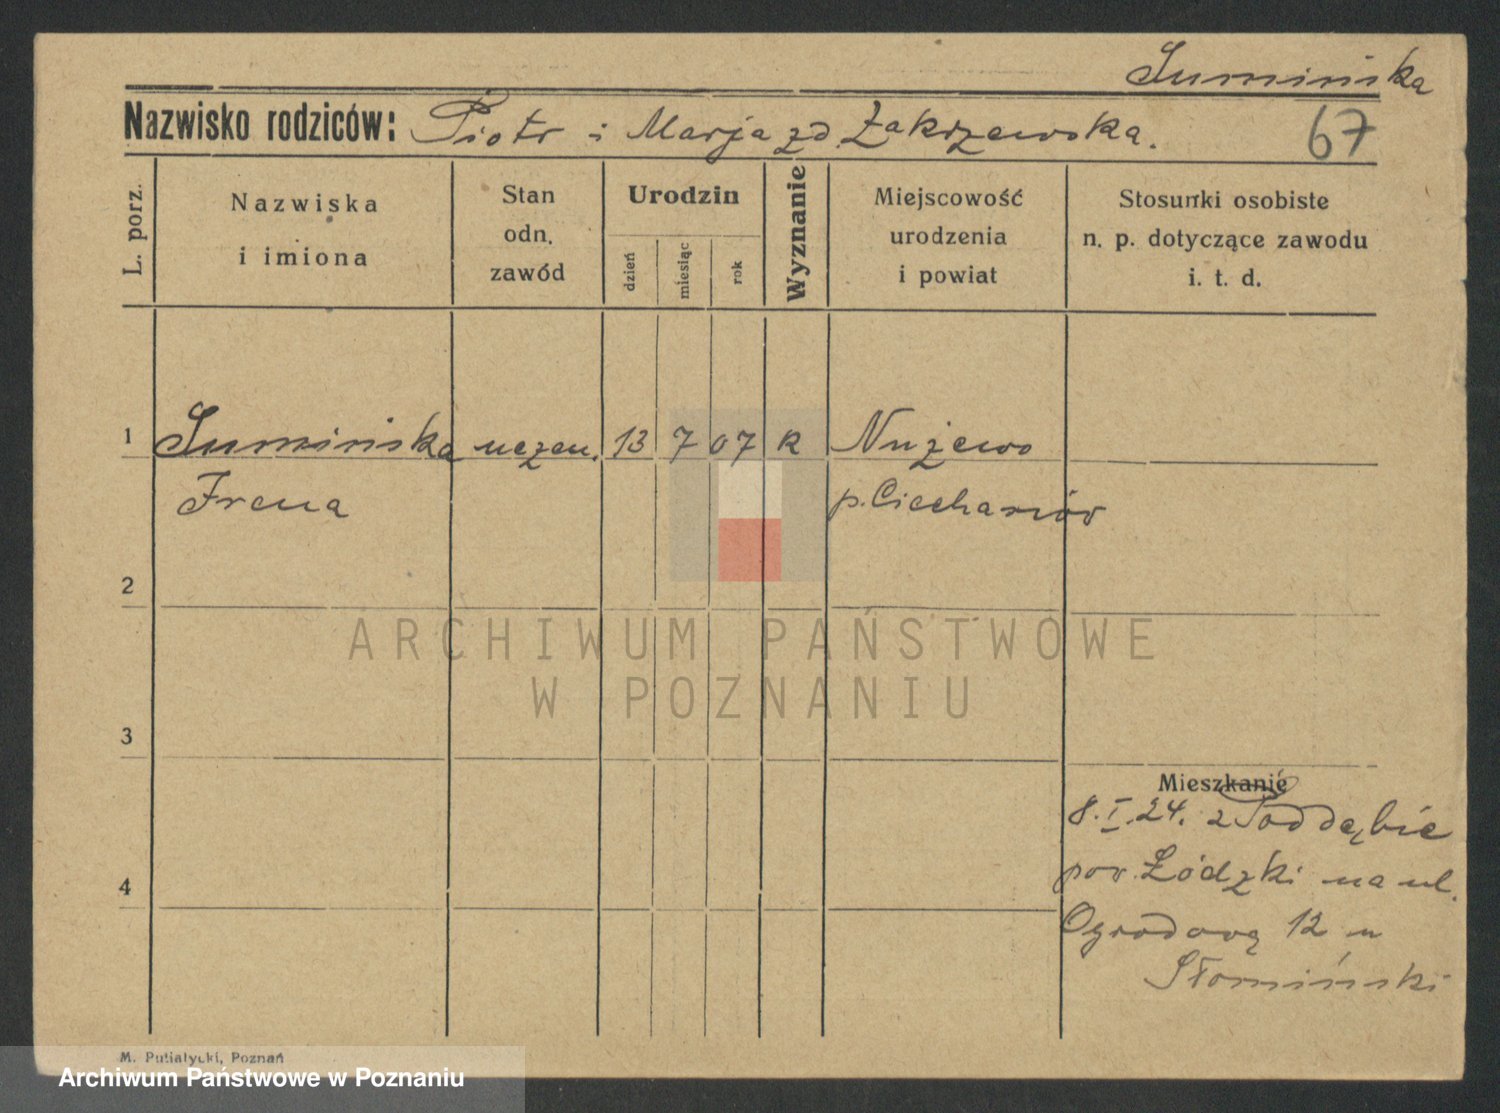 Sumińska
Nazwisko rodziców: Piotr i Marja zd. Zakrzewska.
67
L. porz.
Nazwiska
i imiona
Stan
odn.
zawód
Urodzin
dzień
miesiąc
rok
Wyznanie
Miejscowość
urodzenia
i powiat
Stosunki osobiste
n. p. dotyczące zawodu
i. t. d.
1 Sumińska uczen. 13 7 07 R Nużewo
Irena p. Ciechanów
2
3
4
ARCHIWUM PAŃSTWOWE
W POZNANIU
Mieszkanie
8.I.24. z Poddębie
pow. Łódzki na ul.
Ogrodową 12 u
Słomiński
M. Putiatycki, Poznań
Archiwum Państwowe w Poznaniu